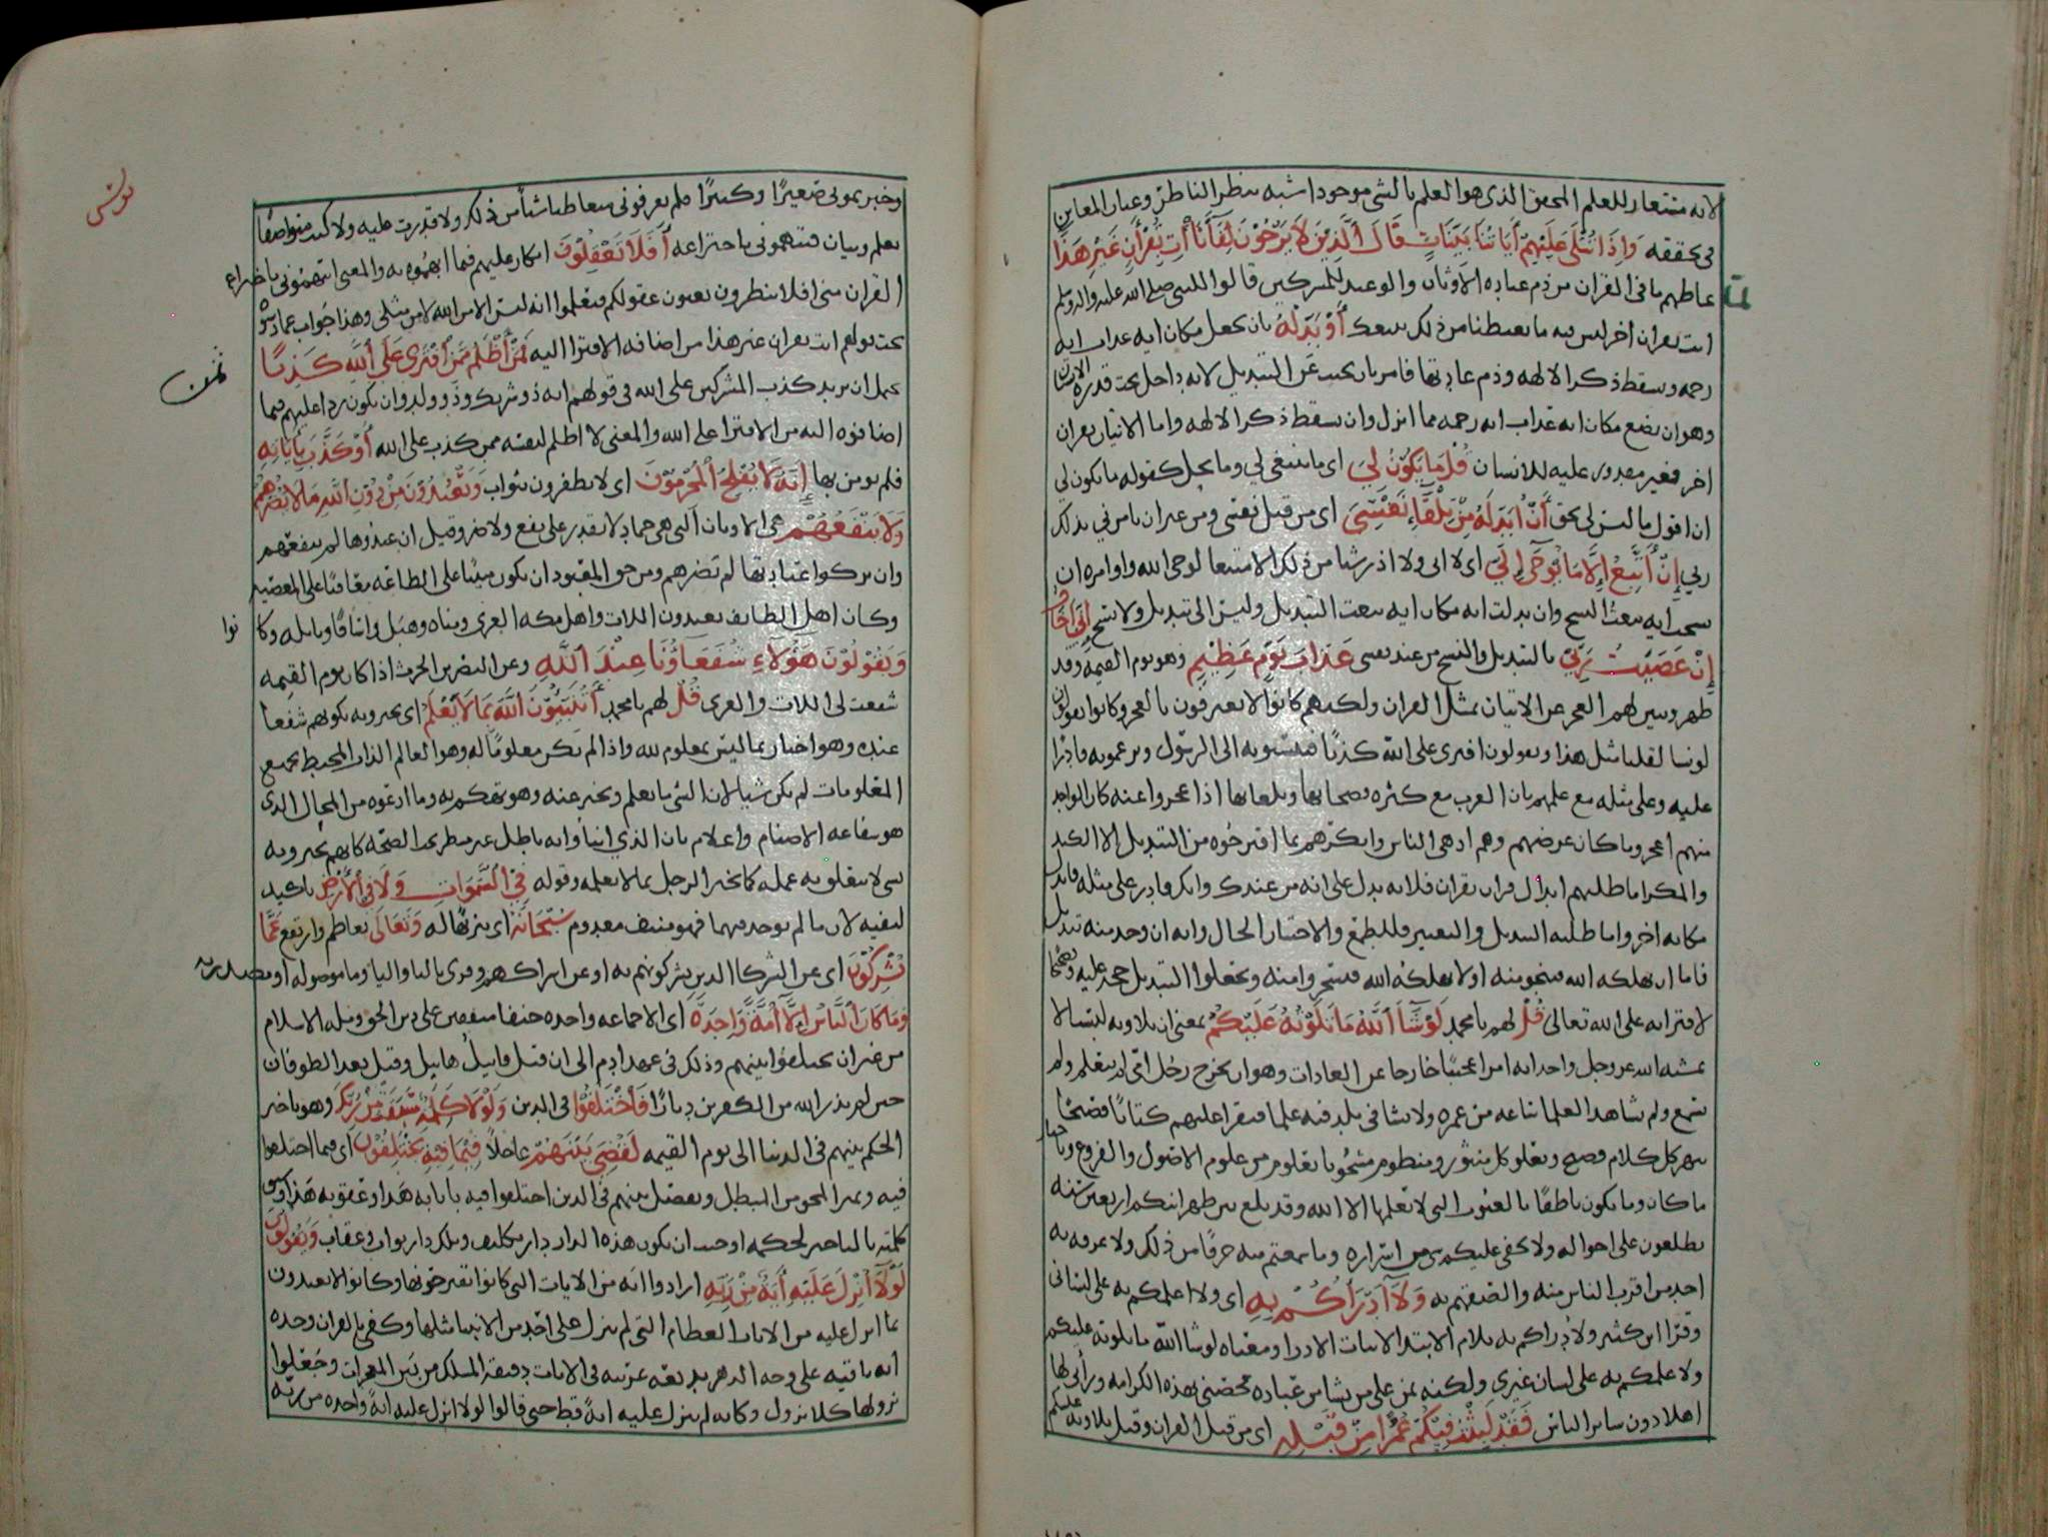 لانه مستعار للعلم المحقق الذي هو العلم بالشي موجودا شبه بنظر الناظر وعيان المعاين
في تحققه وَإِذَا تُتْلَى عَلَيْهِمْ آيَاتُنَا بَيِّنَاتٍ قَالَ الَّذِينَ لَا يَرْجُونَ لِقَآءَنَا أْتِ بِقُرْآنٍ غَيْرِ هَذَا
غاظهم ما في القران من ذم عباده الاوثان والوعيد للمشركين قالوا للنبي صلى الله عليه واله وسلم
ايت بقران اخر ليس فيه ما يغيظنا من ذلك نتبعك أَوْ بَدِّلْهُ بان تجعل مكان ايه عذاب ايه
رحمه وتسقط ذكر الالهه وذم عبادتها فامر بان يجيب عن التبديل لانه داخل تحت قدره الانسان
وهو ان يضع مكان ايه عذاب ايه رحمه مما انزل وان يسقط ذكر الالهه واما الاتيان بقران
اخر فغير مقدور عليه للانسان قُلْ مَا يَكُونُ لِي اي ما ينبغي لي وما يحل كقوله ما يكون لي
ان اقول ما ليس لي بحق أَنْ أُبَدِّلَهُ مِنْ تِلْقَاءِ نَفْسِي اي من قبل نفسي ومن غير ان يامرني بذلك
ربي إِنْ أَتَّبِعُ إِلَّا مَا يُوحَى إِلَيَّ اي لا اتي ولا اذر شيا من ذلك الا متبعا لوحي الله واوامره ان
نسخت ايه تبعت النسخ وان بدلت ايه مكان ايه تبعت التبديل وليس الي تبديل ولا نسخ إِنِّي أَخَافُ
إِنْ عَصَيْتُ رَبِّي بالتبديل والنسخ من عند نفسي عَذَابَ يَوْمٍ عَظِيمٍ وهو يوم القيمه وقد
ظهر وتبين لهم العجز عن الاتيان بمثل القران ولكنهم كانوا لا يعترفون بالعجز وكانوا يقولون
لو نشا لقلنا مثل هذا ويقولون افترى على الله كذبا فينسبونه الى الرسول ويزعمونه قادرا
عليه وعلى مثله مع علمهم بان العرب مع كثره فصحائها وبلغائها اذا عجزوا عنه كان الواحد
منهم اعجز وما كان غرضهم وهم ادهى الناس وانكرهم بما اقترحوه من التبديل الا الكيد
والمكر اما طلبهم ابدال قران بقران فلانه يدل على انه من عندك وانك قادر على مثله فابدل
مكانه اخر واما طلبه التبديل والتغيير فللطمع والاختبار الحال وانه ان وجد منه تبديل
فاما ان يهلكه الله فينجو منه او لا يهلكه الله فيسخروا منه ويجعلوا التبديل حجه عليه وتصحيحا
لافترائه على الله تعالى قُلْ لهم يا محمد لَوْ شَآءَ اللَّهُ مَا تَلَوْتُهُ عَلَيْكُمْ يعني ان تلاوته ليست الا
بمشيه الله عز وجل واحداثه امرا عجيبا خارجا عن العادات وهو ان يخرج رجل امي لم يتعلم ولم
يستمع ولم يشاهد العلما ساعه من عمره ولا نشا في بلد فيه علما فيقرا عليهم كتابا فصيحا
يبهر كل كلام فصيح ويعلو كل منثور ومنظوم مشحونا بعلوم من علوم الاصول والفروع واخبار
ما كان وما يكون ناطقا بالغيوب التي لا يعلمها الا الله وقد بلغ بين ظهرانيكم اربعين سنه
يطلعون على احواله ولا يخفى عليكم شي من اسراره وما سمعتم منه حرفا من ذلك ولا عرفه به
احد من اقرب الناس منه والصقهم به وَلَآ أَدْرَاكُمْ بِهِ اي ولا اعلمكم به على لساني
وقرا ابن كثير ولادراكم به بلام الابتدا لاثبات الادرا ومعناه لو شا الله ما تلوته عليكم
ولا علمكم به على لسان غيري ولكنه يمن على من يشا من عباده فخصني بهذه الكرامه ورآني لها
اهلا دون ساير الناس فَقَدْ لَبِثْتُ فِيكُمْ عُمُرًا مِنْ قَبْلِهِ اي من قبل القران وقيل تلاوته عليكم
وخبر بموتي صغيرًا وكبيرًا فلم تعرفوني متعاطيا شيا من ذلك ولا قدرت عليه ولا كنت متواصفا
بعلم وبيان فتتهموني باختراعه أَفَلَا تَعْقِلُونَ انكار عليهم فيما اتهموه به والمعنى اتتهموني باختراع
القران مني افلا تنظرون بعيون عقولكم فتعلموا انه ليس الا من الله لا من مثلي وهذا جواب عما دسوه
تحت قولهم ايت بقران غير هذا من اضافه الافترا اليه فَمَنْ أَظْلَمُ مِمَّنِ افْتَرَى عَلَى اللَّهِ كَذِبًا
يحتمل ان يريد كذب المشركين على الله في قولهم انه ذو شريك وذو ولد وان يكون ردا عليهم فيما
اضافوه اليه من الافترا على الله والمعنى لا اظلم لنفسه ممن كذب على الله أَوْ كَذَّبَ بِآيَاتِهِ
فلم يومن بها إِنَّهُ لَا يُفْلِحُ الْمُجْرِمُونَ اي لا يظفرون بثواب وَيَعْبُدُونَ مِنْ دُونِ اللَّهِ مَا لَا يَضُرُّهُمْ
وَلَا يَنْفَعُهُمْ هي الاوثان التي هي جماد لا تقدر على نفع ولا ضر وقيل ان عبدوها لم تنفعهم
وان تركوا عبادتها لم تضرهم ومن حق المعبود ان يكون مثيبا على الطاعه معاقبا على المعصيه
وكان اهل الطايف يعبدون اللات واهل مكه العزى ومناه وهبل واسافا ونائله وكا
نوا
وَيَقُولُونَ هَؤُلَاءِ شُفَعَاؤُنَا عِنْدَ اللَّهِ وعن النضر بن الحرث اذا كان يوم القيمه
شفعت لي اللات والعزى قُلْ لهم يا محمد أَتُنَبِّئُونَ اللَّهَ بِمَا لَا يَعْلَمُ اي تخبرونه بكونهم شفعا
عنده وهو اخبار بما ليس بمعلوم لله واذا لم يكن معلومًا له وهو العالم الذات المحيط بجميع
المعلومات لم يكن شيا لان الشي ما يعلم ويخبر عنه وهو تهكم به وما ادعوه من المحال الذي
هو شفاعه الاصنام واعلام بان الذي انبأوا به باطل غير منطو تحت الصحه كانهم يخبرونه
بشي لا يتعلق به علمه كما يخبر الرجل بما لا يعلمه وقوله فِي السَّمَوَاتِ وَلَا فِي الْأَرْضِ تاكيد
لنفيه لان ما لم يوجد فيهما فهو منتف معدوم سُبْحَانَهُ اي تنزيها له وَتَعَالَى تعاظم وارتفع عَمَّا
يُشْرِكُونَ اي عن الشركا الذين يشركونهم به او عن اشراكهم وقرى بالتا واليا وما موصوله او مصدريه
وَمَا كَانَ النَّاسُ إِلَّا أُمَّةً وَاحِدَةً اي الا جماعه واحده حنفا متفقين على دين الحق ومله الاسلام
من غير ان يختلفوا بينهم وذلك في عهد ادم الى ان قتل قابيل هابيل وقيل بعد الطوفان
حين لم يذر الله من الكفرين ديارًا فَاخْتَلَفُوا في الدين وَلَوْلَا كَلِمَةٌ سَبَقَتْ مِنْ رَبِّكَ وهو تاخير
الحكم بينهم في الدنيا الى يوم القيمه لَقُضِيَ بَيْنَهُمْ عاجلًا فِيمَا فِيهِ يَخْتَلِفُونَ اي فيما اختلفوا
فيه وتميز المحق من المبطل ويفصل بينهم في الدين اختلفوا فيه باثابه هذا وعقوبه هذا وسبق
كلمته بالتاخير لحكمه اوجبت ان يكون هذه الدار دار تكليف وتلك دار ثواب وعقاب وَيَقُولُونَ
لَوْلَآ أُنْزِلَ عَلَيْهِ آيَةٌ مِنْ رَبِّهِ ارادوا ايه من الايات التي كانوا تقترحونها وكانوا لا يعتدون
بما انزل عليه من الايات العظام التي لم ينزل على احد من الانبيا مثلها وكفى بالقران وحده
ايه باقيه على وجه الدهر بديعه غريبه في الايات دقيقه المسلك من بين المعجزات وجعلوا
نزولها كلا نزول وكانه لم ينزل عليه ايهً قط حتى قالوا لولا انزل عليه ايهً واحده من ربه